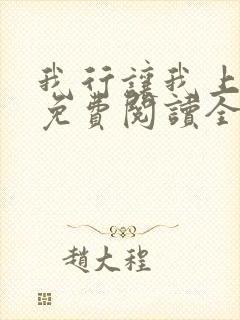 我行讓我上
免費閱讀全
趙大程